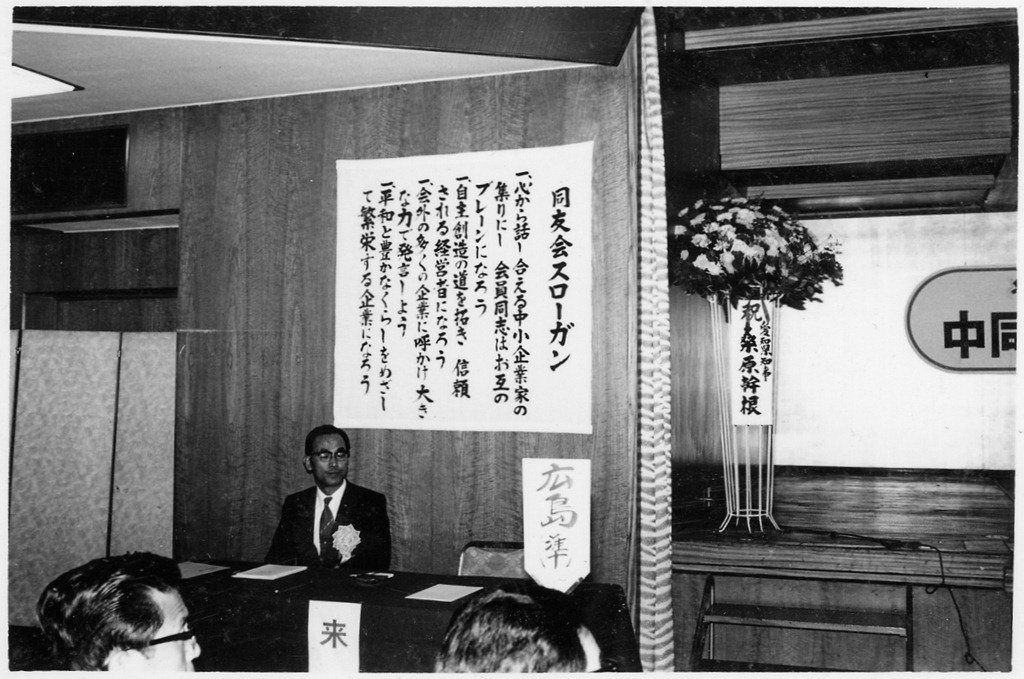 同友会スローガン
一、心から話し合える中小企業家の
集りにし 会員同志はお互の
ブレーンになろう
一、自主創造の道を拓き 信頼
される経営者になろう
一、会外の多くの企業に呼かけ 大き
な力で発言しよう
一、平和と豊かなくらしをめざし
て繁栄する企業になろう
祝
愛知県知事
桑原幹根
中同
広島(準)
来